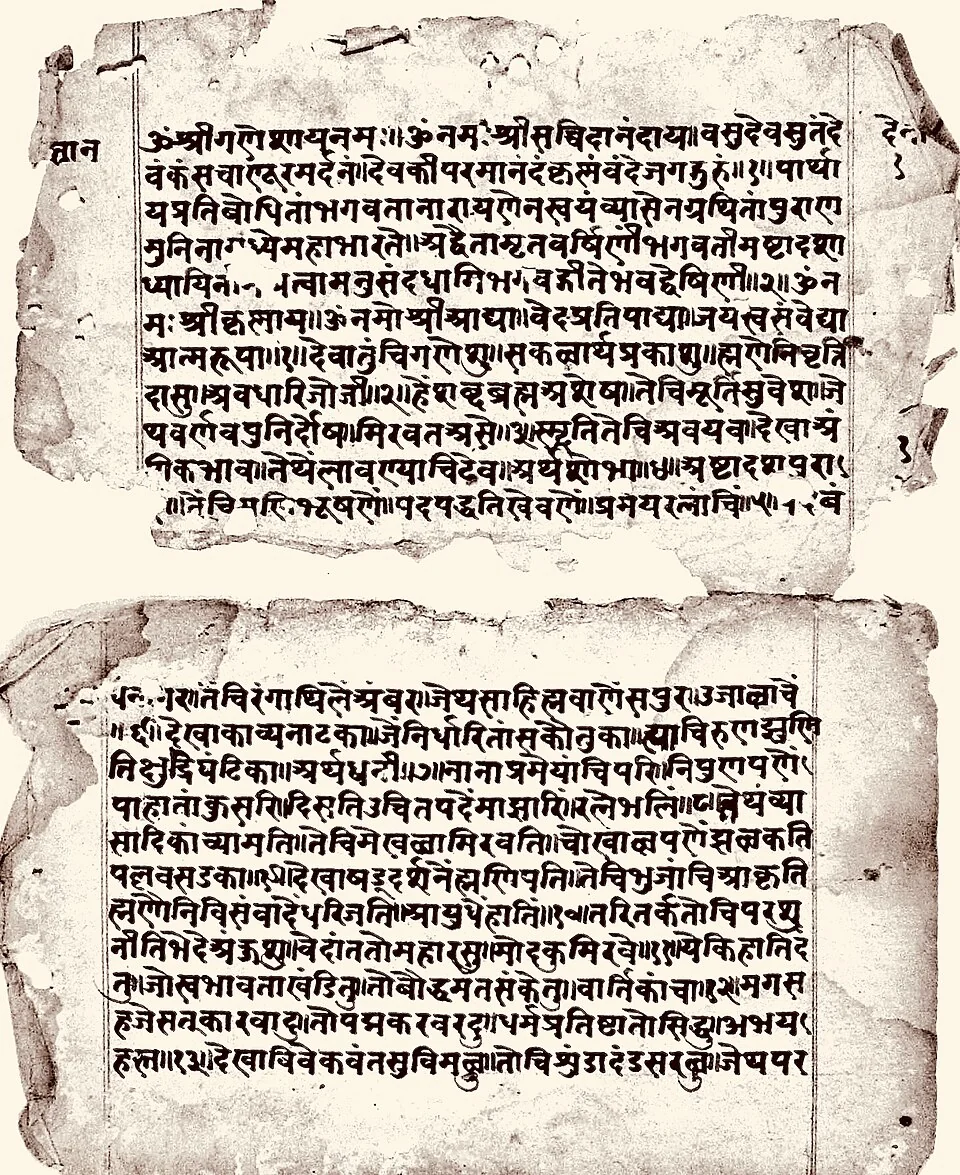 ज्ञान
ॐश्रीगणेशायनमः॥ॐनमःश्रीसच्चिदानंदाय॥वसुदेवसुतंदे
वंकंसचाणूरमर्दनं॥देवकीपरमानंदंकृस्नंवंदेजगद्गुरुं॥१॥पार्था
यप्रतिबोधितांभगवतानारायणेनस्वयंव्यासेनग्रथितांपुराण
मुनिनामध्येमहाभारते॥अद्वैतामृतवर्षिणीभगवतीमष्टादशा
ध्यायिन त्वामनुसंदधामिभगवद्गीतेभवद्वेषिणी॥२॥ॐन
मःश्रीकृस्नाय॥ॐनमोश्रीआद्या॥वेदप्रतिपाद्या॥जयस्वसंवेद्या
आत्मरूपा॥१॥देवातुंचिगणेशु॥सकळार्थप्रकाशु॥ह्मणेनिवृत्ति
दासु॥अवधारिजोजी॥२॥हेशब्दब्रह्मअशेषा॥तेचिमूर्तिसुवेशा॥जे
थवर्णवपुनिर्दोष॥मिरवतअसे॥३॥स्मृतितेचिअवयव॥देखाअं
गिकभाव॥तेथेंलावण्याचिठेव॥अर्थशोभा॥४॥अष्टादशपुरा
॥तेंचि भूषणें॥पदपद्धतिखेवणें॥प्रमेयरत्नांचिं॥५॥ बं
तेंचिरंगाथिलेंअंबर॥जेथसाहित्यवाणेंसपुर॥उजाळाचें
॥६॥देखाकाव्यनाटका॥जेंनिर्धारितांसकौतुका॥त्याचिरुणझुणि
तिक्षुद्रघंटिका॥अर्थध्वनी॥७॥नानाप्रमेयांचिपरि॥निपुणपणें
पाहातांकुसरि॥दिसतिउचितपदेंमाझारि॥रत्नेंभलिं॥८॥तेथंव्या
सादिकांच्यामति॥तेचिमेखळामिरवति॥चोखाळपणेंझळकति
पल्लवसडका॥९॥देखाषड्दर्शनेंह्मणिपति॥तेचिभुजांचिआकृति
ह्मणेनिविसंवादेधरिजति॥आयुधेंहातिं॥१०॥तरितर्कतोचिपरशु
नीतिभेदेअङ्कुशु॥वेदांततोमहारसु॥मोदकुमिरवे॥११॥येकिहातिदं
तु॥जोस्वभावताखंडितु॥तोबौद्धमतसंकेतु॥वार्तिकांचा॥१२॥मगस
हजेसत्कारवादु॥तोपद्मकरवरदु॥धर्मप्रतिष्टातोसिद्धु॥अभय
हस्त॥१३॥देखाविवेकवंतसुविमळु॥तोचिशुंडादंडसरळु॥जेथपर